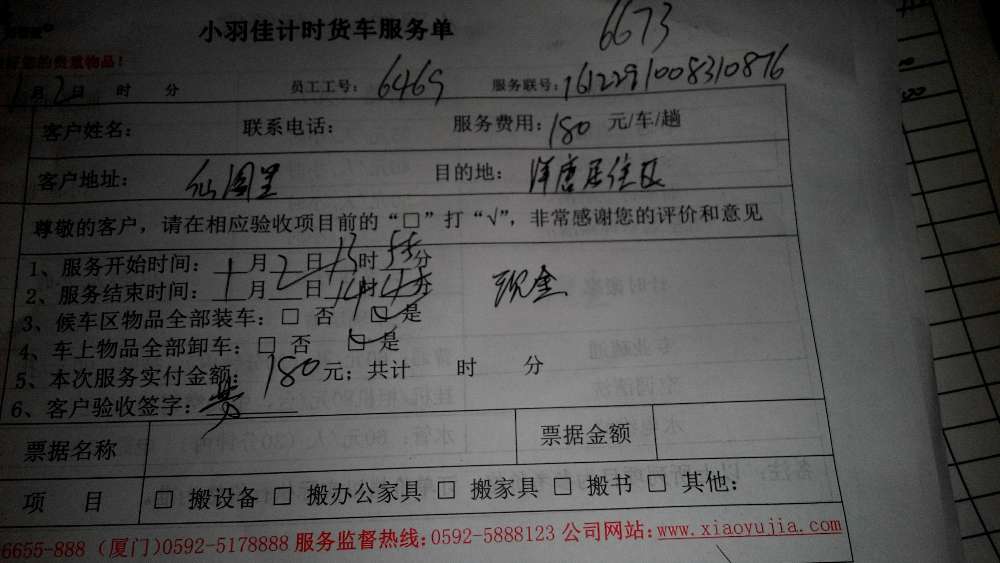 小羽佳计时货车服务单
6673
您的贵重物品！
1月2日 时 分 员工工号：6469 服务联号：1612291008310876
客户姓名： 联系电话： 服务费用：180 元/车/趟
客户地址： 仙阁里 目的地： 洋唐居住区
尊敬的客户，请在相应验收项目前的“□”打“√”，非常感谢您的评价和意见
1、服务开始时间：1月2日13时55分
2、服务结束时间：1月 日14时45分 现金
3、候车区物品全部装车：□ 否 ☑ 是
4、车上物品全部卸车：□ 否 ☑ 是
5、本次服务实付金额：180元；共计 时 分
6、客户验收签字：
票据名称 票据金额
项 目 □ 搬设备 □ 搬办公家具 □ 搬家具 □ 搬书 □ 其他：
6655-888（厦门）0592-5178888 服务监督热线：0592-5888123 公司网站：www.xiaoyujia.com